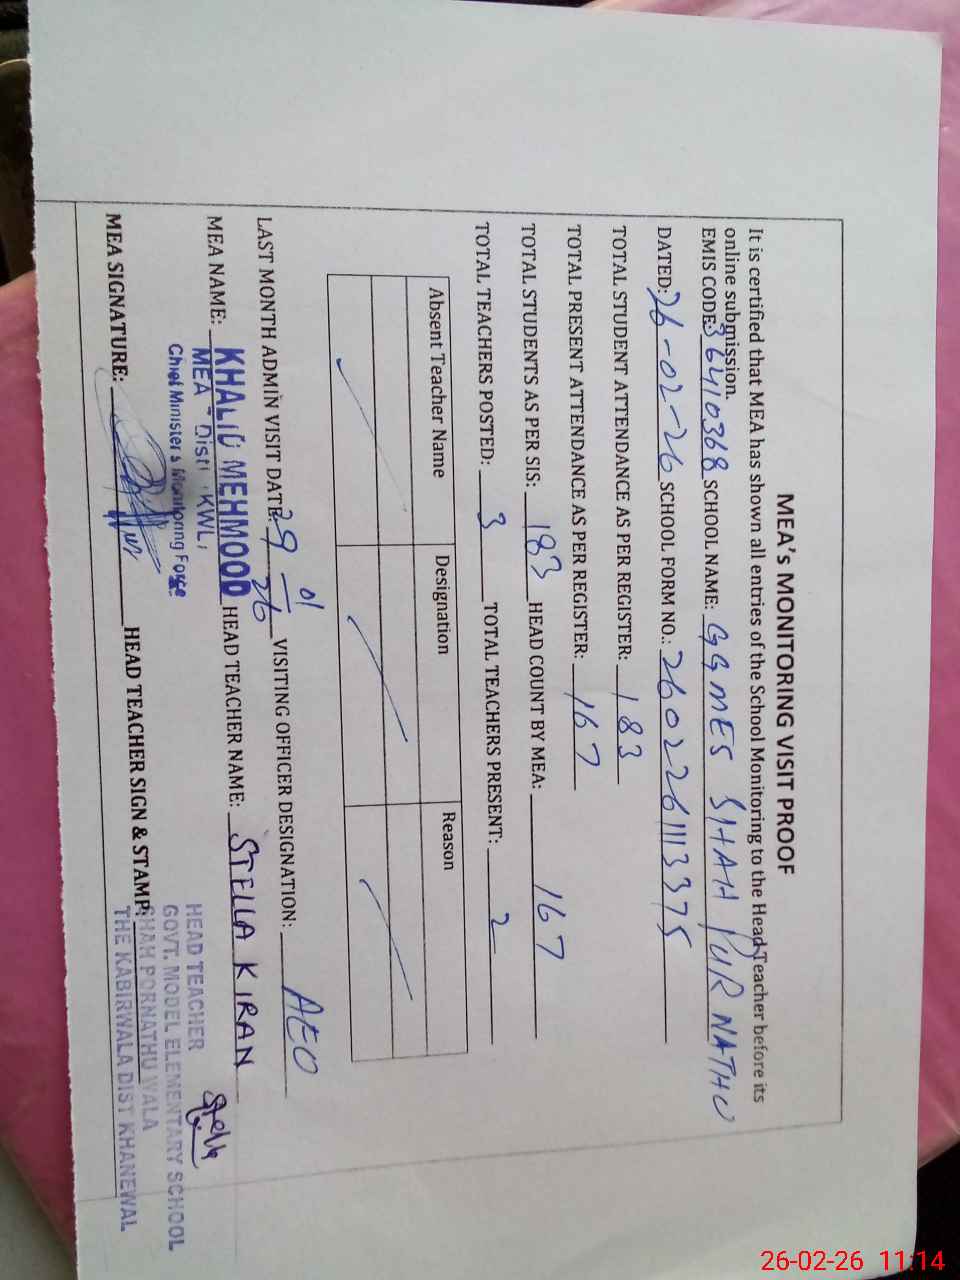 MEA's MONITORING VISIT PROOF
It is certified that MEA has shown all entries of the School Monitoring to the Head Teacher before its
online submission.
EMIS CODE: 36410368 SCHOOL NAME: GGMES SHAH PUR NATHU
DATED: 26-02-26 SCHOOL FORM NO.: 260226113375
TOTAL STUDENT ATTENDANCE AS PER REGISTER: 183
TOTAL PRESENT ATTENDANCE AS PER REGISTER: 167
TOTAL STUDENTS AS PER SIS: 183 HEAD COUNT BY MEA: 167
TOTAL TEACHERS POSTED: 3 TOTAL TEACHERS PRESENT: 2
Absent Teacher Name Designation Reason
LAST MONTH ADMIN VISIT DATE: 29 01 26 VISITING OFFICER DESIGNATION: AEO
MEA NAME: KHALID MEHMOOD HEAD TEACHER NAME: STELLA KIRAN
MEA - Distt KWL
Chief Ministers Monitoring Force
MEA SIGNATURE: HEAD TEACHER SIGN & STAMP:
Stella
HEAD TEACHER
GOVT. MODEL ELEMENTARY SCHOOL
SHAH PORNATHU WALA
THE KABIRWALA DIST KHANEWAL
26-02-26 11:14